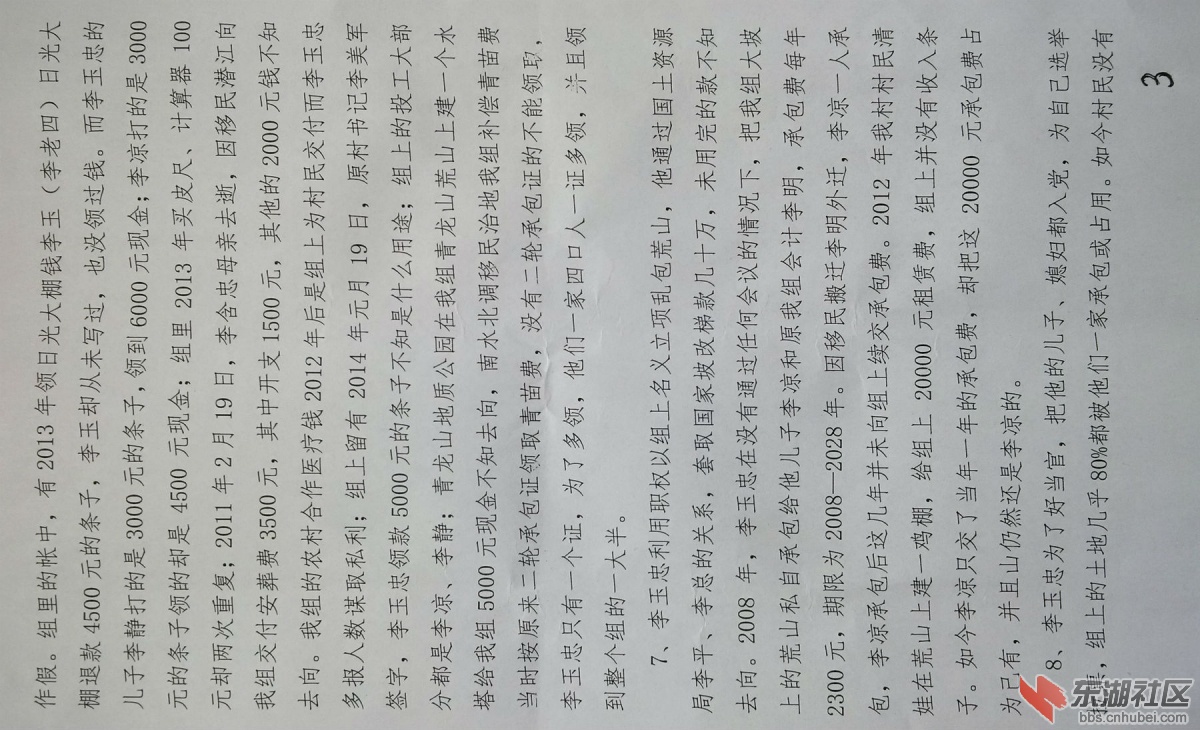 作假。组里的帐中，有 2013 年领日光大棚钱李玉（李老四）日光大
棚退款 4500 元的条子，李玉却从未写过，也没领过钱。而李玉忠的
儿子李静打的是 3000 元的条子，领到 6000 元现金；李凉打的是 3000
元的条子领的却是 4500 元现金；组里 2013 年买皮尺、计算器 100
元却两次重复；2011 年 2 月 19 日，李含忠母亲去逝，因移民潜江向
我组交付安葬费 3500 元，其中开支 1500 元，其他的 2000 元钱不知
去向。我组的农村合作医疗钱 2012 年后是组上为村民交付而李玉忠
多报人数谋取私利；组上留有 2014 年元月 19 日，原村书记李美军
签字，李玉忠领款 5000 元的条子不知是什么用途；组上的投工大部
分都是李凉、李静；青龙山地质公园在我组青龙山荒山上建一个水
塔给我组 5000 元现金不知去向，南水北调移民治地我组补偿青苗费
当时按原来二轮承包证领取青苗费，没有二轮承包证的不能领取，
李玉忠只有一个证，为了多领，他们一家四口人一证多领，并且领
到整个组的一大半。
7、李玉忠利用职权以组上名义立项乱包荒山，他通过国土资源
局李平、李总的关系，套取国家坡改梯款几十万，未用完的款不知
去向。2008 年，李玉忠在没有通过任何会议的情况下，把我组大坡
上的荒山私自承包给他儿子李凉和原我组会计李明，承包费每年
2300 元，期限为 2008—2028 年。因移民搬迁李明外迁，李凉一人承
包，李凉承包后这几年并未向组上续交承包费。2012 年我村村民清
娃在荒山上建一鸡棚，给组上 20000 元租赁费，组上并没有收入条
子。如今李凉只交了当年一年的承包费，却把这 20000 元承包费占
为己有，并且山仍然还是李凉的。
8、李玉忠为了好当官，把他的儿子、媳妇都入党，为自己选举
投票，组上的土地几乎 80%都被他们一家承包或占用。如今村民没有
3
东湖社区
bbs.cnhubei.com